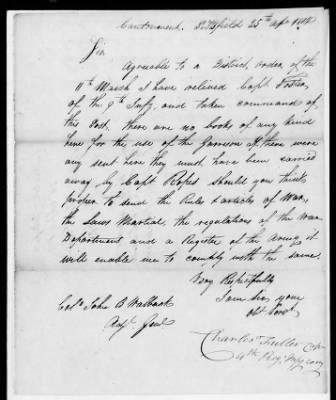 Cantonment, Pittsfield 25th Apr
Sir
Agreeable to a District order of the
11th March I have relieved Capt Foster
of the 9th Infy, and taken command of
this Post. there are no books of any kind
here for the use of the garrison if there were
any sent here they must have been carried
away by Capt Ropes should you think
proper to send the Rules & articles of War,
the Laws Martial, the regulations of the War
Department and a Register of the Army it
will enable me to comply with the same.
Very Respectfully
I am Sir, your
Obt Servt
Colo John B Walback
Adjt Genl
Charles Fuller Capt
4th Regt